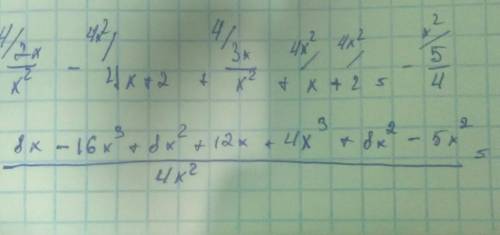 4/ 4x² 4/ 4x² 4x² x²
2x/x² - 4x + 2 + 3x/x² + x + 2 = - 5/4
8x - 16x³ + 8x² + 12x + 4x³ + 8x² - 5x² =
4x²